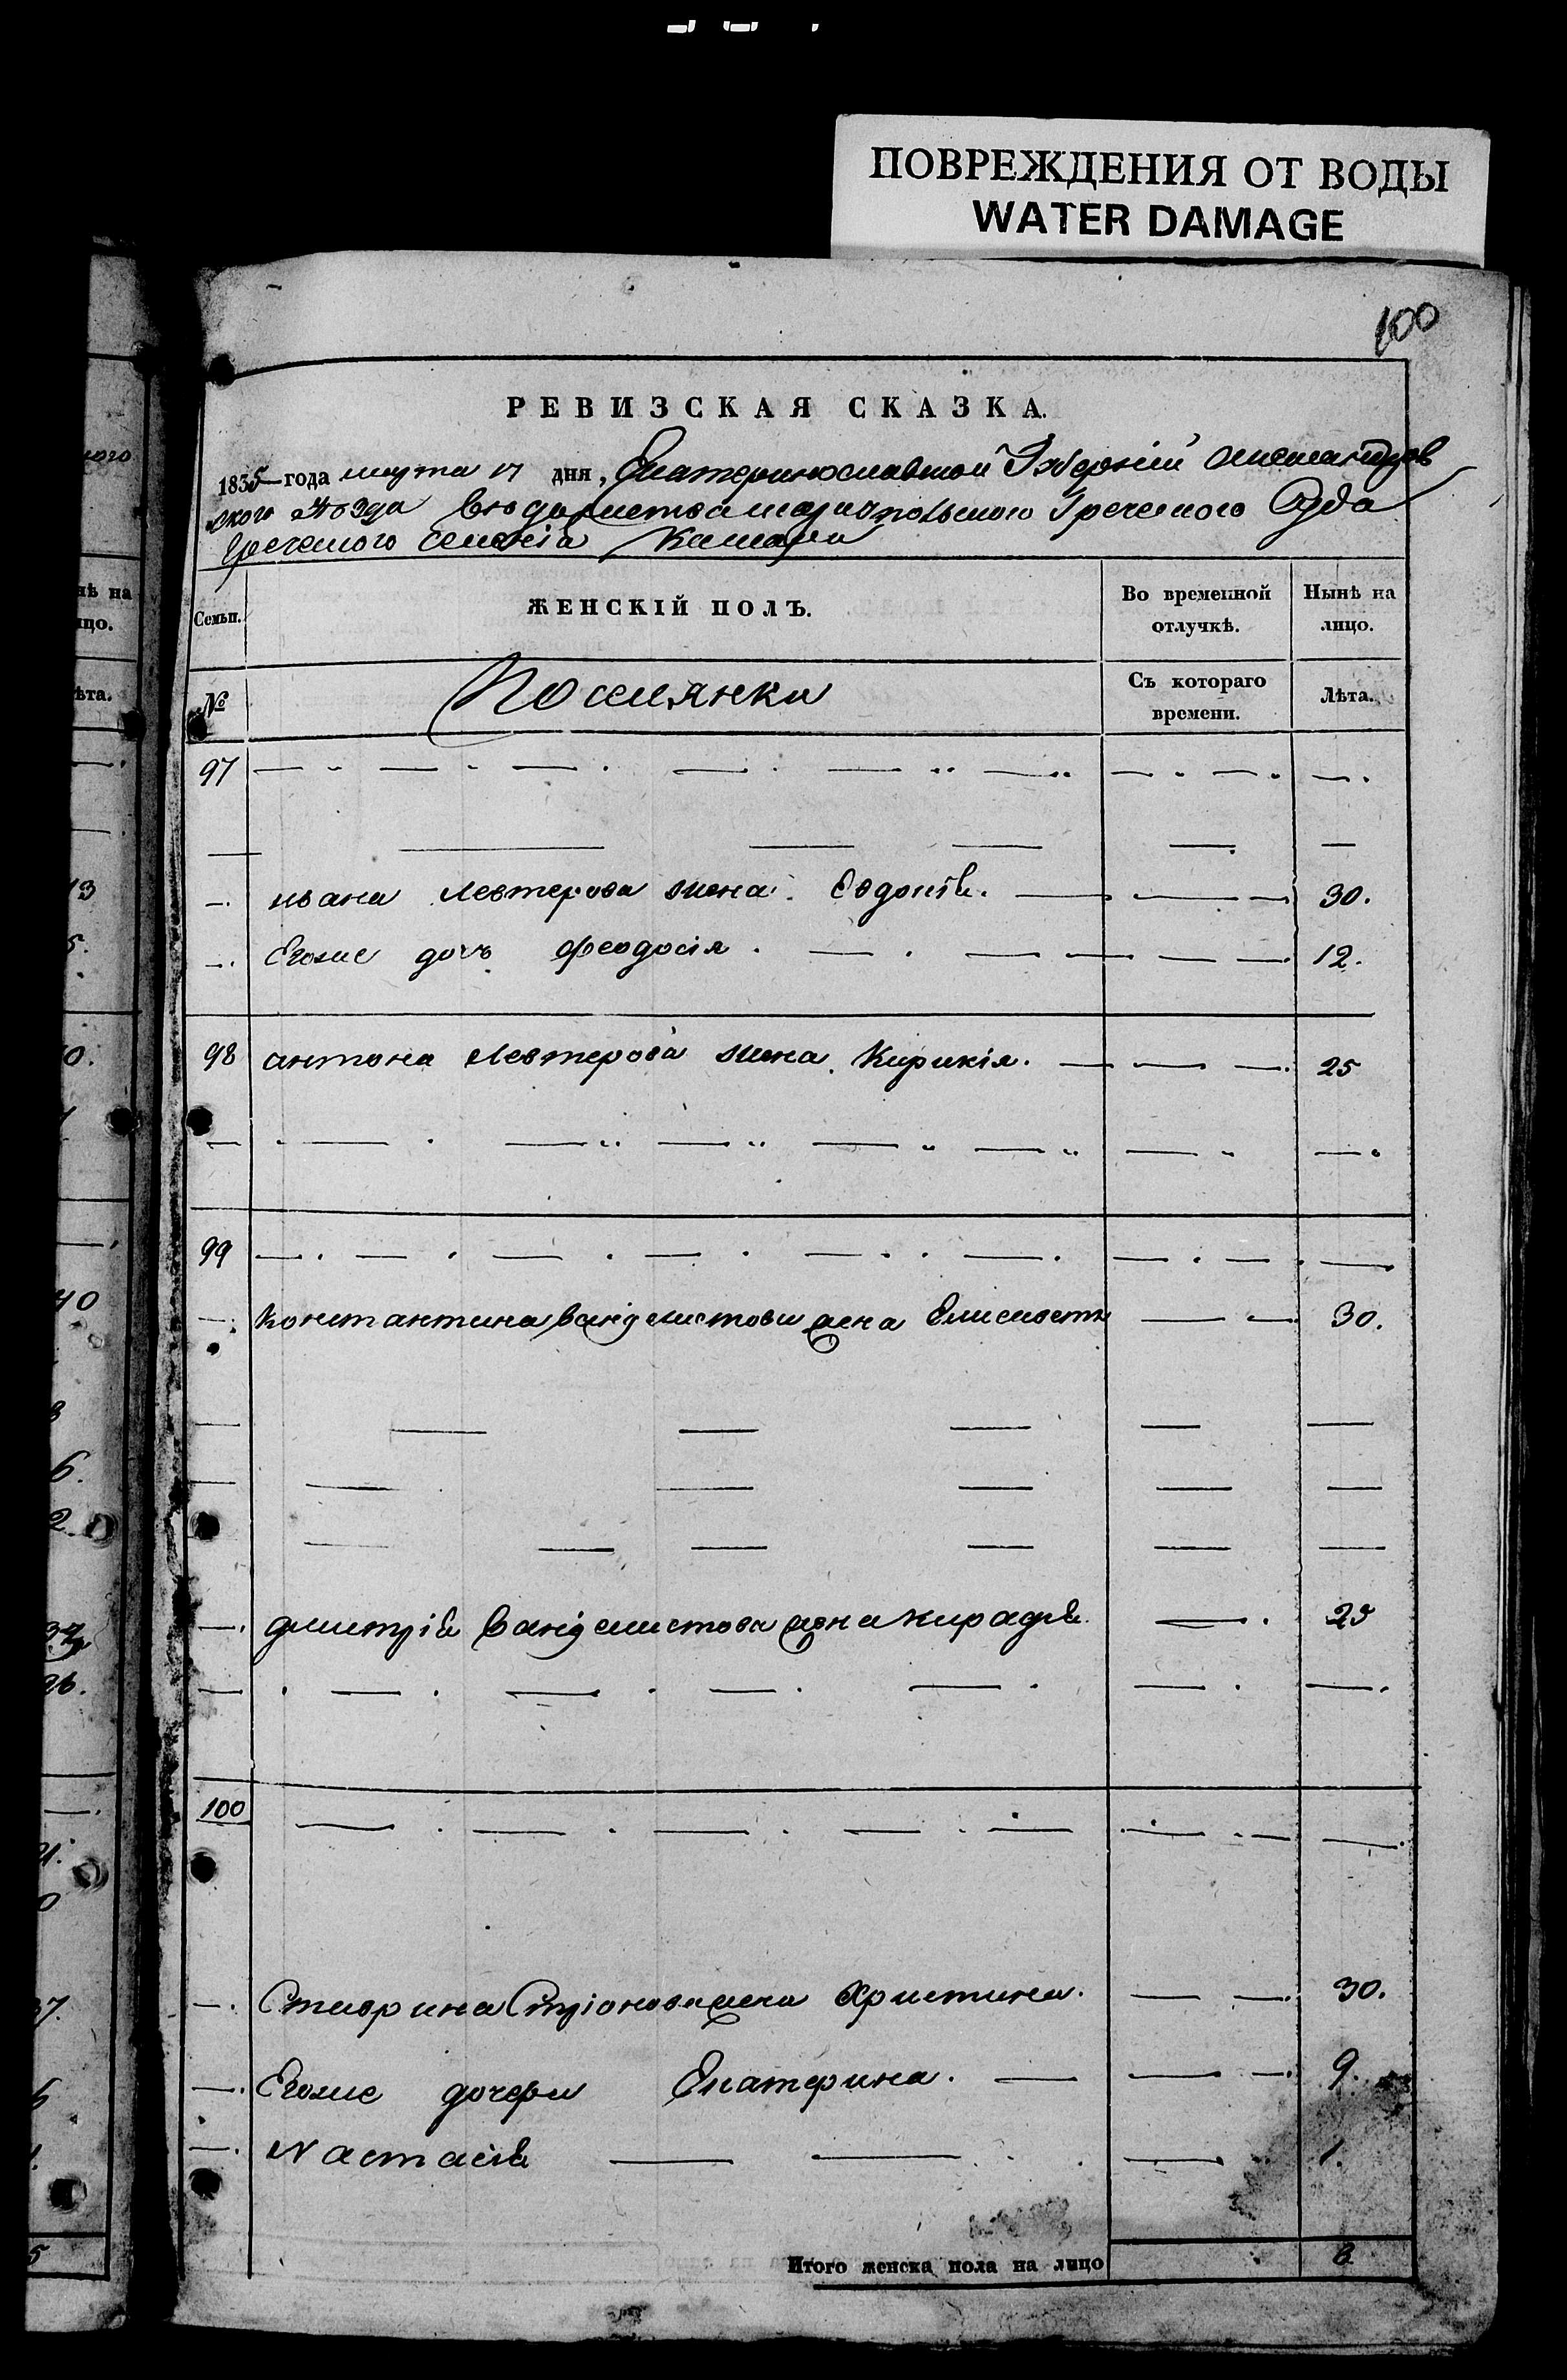 ПОВРЕЖДЕНИЯ ОТ ВОДЫ
WATER DAMAGE
100
РЕВИЗСКАЯ СКАЗКА.
1835 года марта 17 дня, Екатеринославской Губерніи Александров
ского уезда ведомства мариупольского Греческого Суда
Греческого селенія
Семьи.
ЖЕНСКІЙ ПОЛЪ.
Во временной отлучкѣ.
Нынѣ на лицо.
№
Поселянки
Съ котораго времени.
Лѣта.
97
ивана Левтерова жена Евдокія. 30.
Егоже дочь Феодосія. 12.
98 антона Левтерова жена Кирикія. 25
99
Константина жена 30.
дмитрія жена 25
100
Ставрина жена Христина. 30.
Егоже дочери Екатерина. 9.
Настасія 1.
Итого женска пола на лицо 8